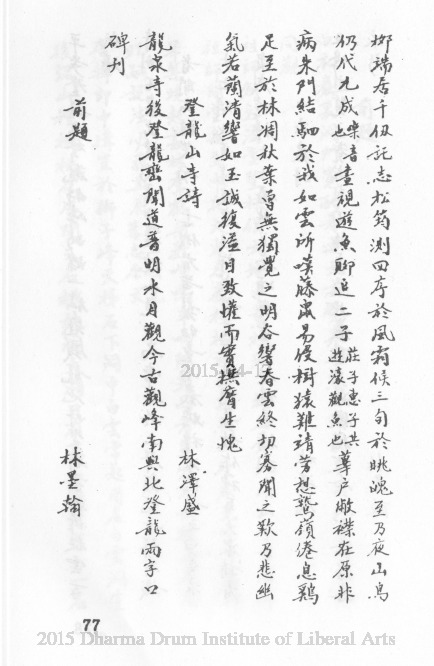 瑞居千仞託志松筠測四序於風霜候三旬於眺魄至乃夜山鳥
仍代九成樂音也晝視遊魚聊追二子莊子惠子共遊濠觀魚也蓽戶敞襟在原非
病朱門結駟於我如雲所嗟藤鼠易侵樹猿難靖勞想鷲嶺倦息鷄
足至於林凋秋葉曾無獨覺之明谷響春雲終切寡聞之歎乃悲幽
氣若蘭清響如玉誠復溢目致懽而實撫膺生愧
登龍山寺詩 林澤盛
龍泉寺後登龍巒聞道普明水月觀今古觀峰南興北登龍兩字口
碑刊
前題 林墨翰
77
2015-04-17
2015 Dharma Drum Institute of Liberal Arts